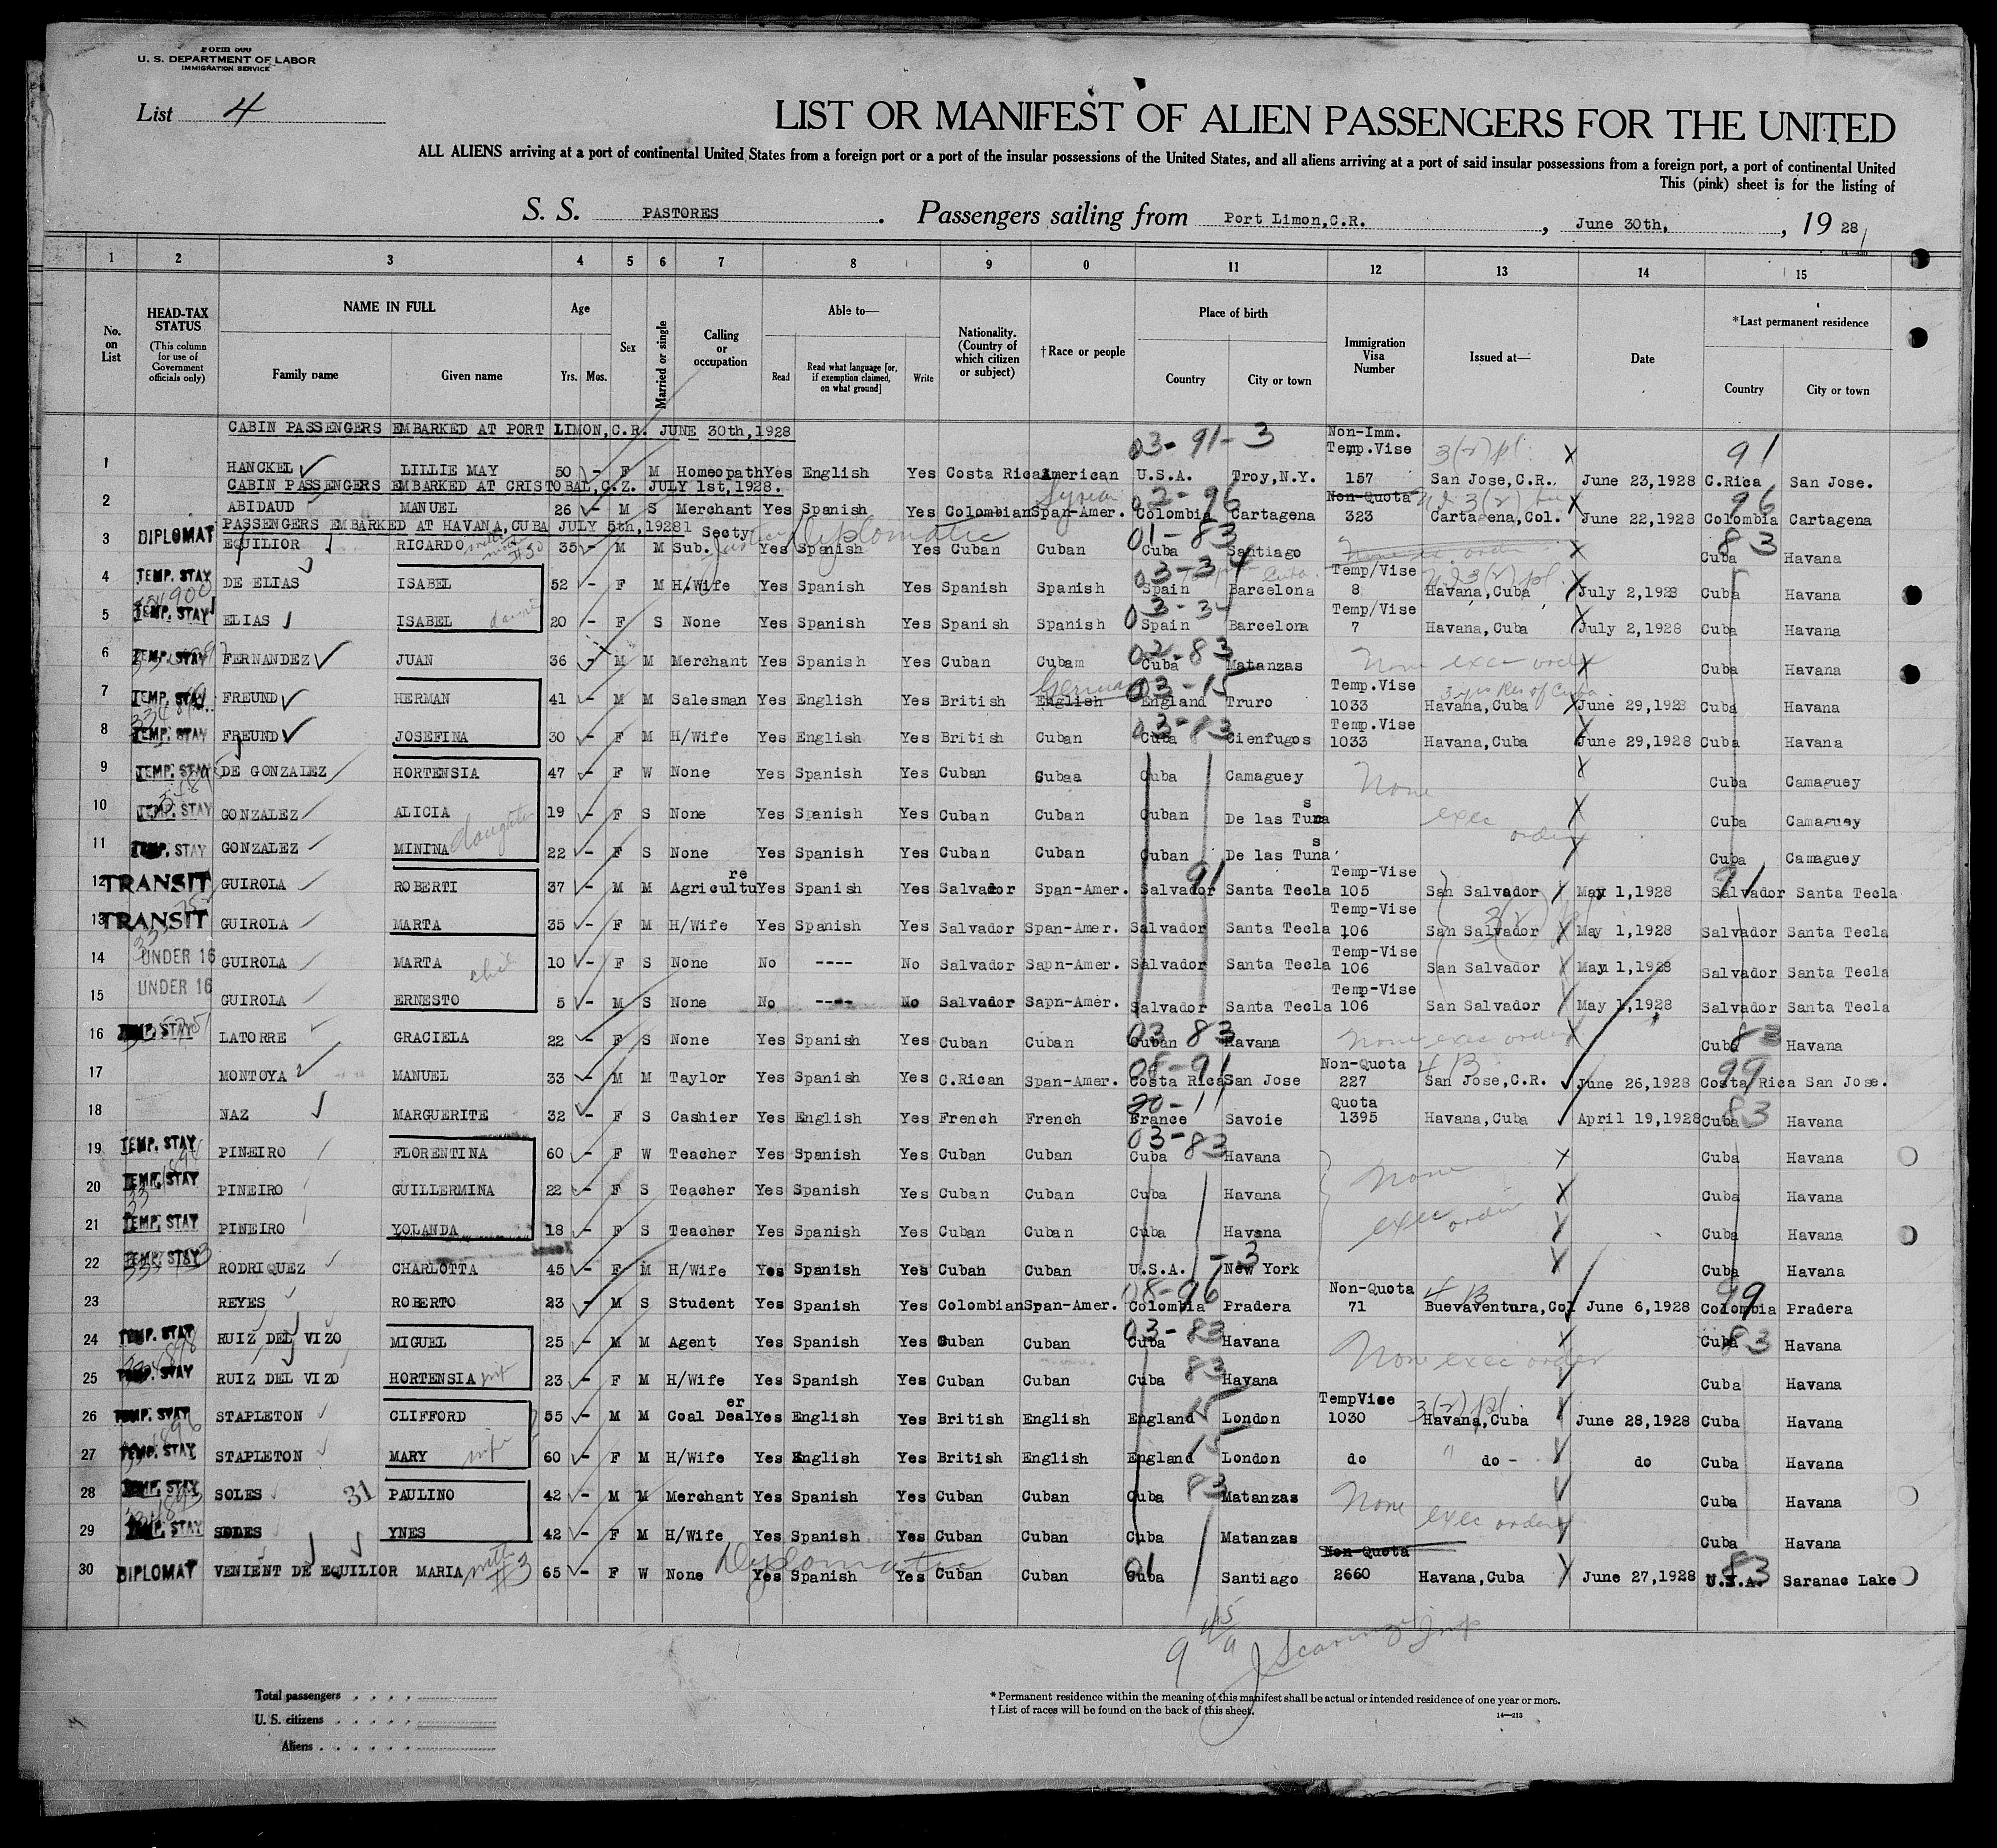 Form 500
U. S. DEPARTMENT OF LABOR
IMMIGRATION SERVICE
List 4
LIST OR MANIFEST OF ALIEN PASSENGERS FOR THE UNITED
ALL ALIENS arriving at a port of continental United States from a foreign port or a port of the insular possessions of the United States, and all aliens arriving at a port of said insular possessions from a foreign port, a port of continental United
This (pink) sheet is for the listing of
S. S. PASTORES. Passengers sailing from Port Limon,C.R., June 30th, 1928
1 2 3 4 5 6 7 8 9 0 11 12 13 14 15
No. on List
HEAD-TAX STATUS (This column for use of Government officials only)
NAME IN FULL Family name Given name
Age Yrs. Mos.
Sex
Married or single
Calling or occupation
Able to— Read Read what language [or, if exemption claimed, on what ground] Write
Nationality. (Country of which citizen or subject)
†Race or people
Place of birth Country City or town
Immigration Visa Number
Issued at—
Date
*Last permanent residence Country City or town
CABIN PASSENGERS EMBARKED AT PORT LIMON,C.R. JUNE 30th,1928 03-91-3 Non-Imm. Temp.Vise 3(2) pl. 91
1 HANCKEL LILLIE MAY 50 - F M Homeopath Yes English Yes Costa Rica American U.S.A. Troy,N.Y. 157 San Jose,C.R. June 23,1928 C.Rica San Jose.
CABIN PASSENGERS EMBARKED AT CRISTOBAL,C.Z. JULY 1st,1928. Syrian 02-96 Non-Quota 96
2 ABIDAUD MANUEL 26 - M S Merchant Yes Spanish Yes Colombian Span-Amer. Colombia Cartagena 323 Cartagena,Col. June 22,1928 Colombia Cartagena
PASSENGERS EMBARKED AT HAVANA,CUBA JULY 5th,1928 Secty Diplomatic 01-83 83
3 DIPLOMAT EQUILIOR RICARDO 35 - M M Sub. Yes Spanish Yes Cuban Cuban Cuba Santiago Cuba Havana
4 TEMP. STAY DE ELIAS ISABEL 52 - F M H/Wife Yes Spanish Yes Spanish Spanish 03-34 Spain Barcelona Temp/Vise 8 Havana,Cuba July 2,1928 Cuba Havana
5 TEMP. STAY ELIAS ISABEL 20 - F S None Yes Spanish Yes Spanish Spanish 03-34 Spain Barcelona Temp/Vise 7 Havana,Cuba July 2,1928 Cuba Havana
6 TEMP. STAY FERNANDEZ JUAN 36 - M M Merchant Yes Spanish Yes Cuban Cubam 02-83 Cuba Matanzas None exec order Cuba Havana
7 TEMP. STAY FREUND HERMAN 41 - M M Salesman Yes English Yes British English German 03-15 England Truro Temp.Vise 1033 3 yrs Res of Cuba. Havana,Cuba June 29,1928 Cuba Havana
8 TEMP. STAY FREUND JOSEFINA 30 - F M H/Wife Yes English Yes British Cuban 03-83 Cuba Cienfugos Temp.Vise 1033 Havana,Cuba June 29,1928 Cuba Havana
9 TEMP. STAY DE GONZALEZ HORTENSIA 47 - F W None Yes Spanish Yes Cuban Cubaa Cuba Camaguey None Cuba Camaguey
10 TEMP. STAY GONZALEZ ALICIA 19 - F S None Yes Spanish Yes Cuban Cuban Cuban De las Tunas exec Cuba Camaguey
11 TEMP. STAY GONZALEZ MININA daughter 22 - F S None Yes Spanish Yes Cuban Cuban Cuban De las Tunas order Cuba Camaguey
12 TRANSIT GUIROLA ROBERTI 37 - M M Agriculture Yes Spanish Yes Salvador Span-Amer. 91 Salvador Santa Tecla Temp-Vise 105 San Salvador May 1,1928 91 Salvador Santa Tecla
13 TRANSIT GUIROLA MARTA 35 - F M H/Wife Yes Spanish Yes Salvador Span-Amer. Salvador Santa Tecla Temp-Vise 106 San Salvador May 1,1928 Salvador Santa Tecla
14 UNDER 16 GUIROLA MARTA 10 - F S None No ---- No Salvador Sapn-Amer. Salvador Santa Tecla Temp-Vise 106 San Salvador May 1,1928 Salvador Santa Tecla
15 UNDER 16 GUIROLA ERNESTO 5 - M S None No ---- No Salvador Sapn-Amer. Salvador Santa Tecla Temp-Vise 106 San Salvador May 1,1928 Salvador Santa Tecla
16 TEMP. STAY LATORRE GRACIELA 22 - F S None Yes Spanish Yes Cuban Cuban 03 83 Cuban Havana None exec order 83 Cuba Havana
17 MONTOYA MANUEL 33 - M M Taylor Yes Spanish Yes C.Rican Span-Amer. 08-91 Costa Rica San Jose Non-Quota 227 4 B San Jose,C.R. June 26,1928 99 Costa Rica San Jose.
18 NAZ MARGUERITE 32 - F S Cashier Yes English Yes French French 20-11 France Savoie Quota 1395 Havana,Cuba April 19,1928 83 Cuba Havana
19 TEMP. STAY PINEIRO FLORENTINA 60 - F W Teacher Yes Spanish Yes Cuban Cuban 03-83 Cuba Havana Cuba Havana
20 TEMP. STAY PINEIRO GUILLERMINA 22 - F S Teacher Yes Spanish Yes Cuban Cuban Cuba Havana None Cuba Havana
21 TEMP. STAY PINEIRO YOLANDA 18 - F S Teacher Yes Spanish Yes Cuban Cuban Cuba Havana exec order Cuba Havana
22 TEMP. STAY RODRIQUEZ CHARLOTTA 45 - F M H/Wife Yes Spanish Yes Cuban Cuban U.S.A. -3 New York Cuba Havana
23 REYES ROBERTO 23 - M S Student Yes Spanish Yes Colombian Span-Amer. 08-96 Colombia Pradera Non-Quota 71 4 B Buevaventura,Col June 6,1928 99 Colombia Pradera
24 TEMP. STAY RUIZ DEL VIZO MIGUEL 25 - M M Agent Yes Spanish Yes Cuban Cuban 03-83 Cuba Havana None exec order 83 Cuba Havana
25 TEMP. STAY RUIZ DEL VIZO HORTENSIA 23 - F M H/Wife Yes Spanish Yes Cuban Cuban Cuba 83 Havana Cuba Havana
26 TEMP. STAY STAPLETON CLIFFORD 55 - M M Coal Dealer Yes English Yes British English England 15 London TempVise 1030 3(2) pl. Havana,Cuba June 28,1928 Cuba Havana
27 TEMP. STAY STAPLETON MARY wife 60 - F M H/Wife Yes English Yes British English England 15 London do " do - do Cuba Havana
28 TEMP. STAY SOLES 31 PAULINO 42 - M M Merchant Yes Spanish Yes Cuban Cuban Cuba 83 Matanzas None Cuba Havana
29 TEMP. STAY SOLES YNES 42 - F M H/Wife Yes Spanish Yes Cuban Cuban Cuba Matanzas exec order Cuba Havana
30 DIPLOMAT VENIENT DE EQUILIOR MARIA with #3 65 - F W None Diplomatic Yes Spanish Yes Cuban Cuban 01 Cuba Santiago Non-Quota 2660 Havana,Cuba June 27,1928 83 U.S.A. Saranac Lake
Total passengers
U. S. citizens
Aliens
* Permanent residence within the meaning of this manifest shall be actual or intended residence of one year or more.
† List of races will be found on the back of this sheet.
14—213